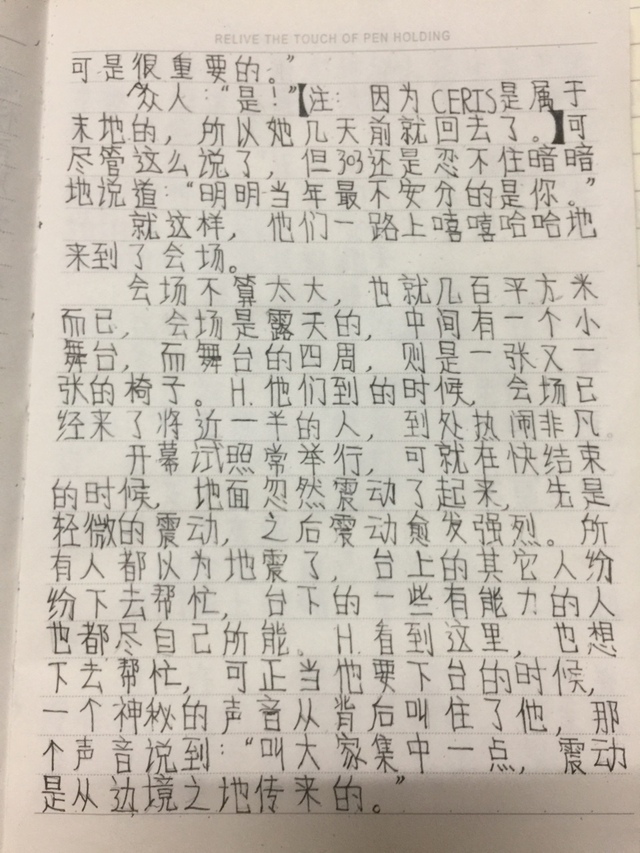 RELIVE THE TOUCH OF PEN HOLDING
可是很重要的。”
众人：“是！”【注： 因为CERIS是属于
末地的，所以她几天前就回去了。】可
尽管这么说了，但303还是忍不住暗暗
地说道：“明明当年最不安分的是你。”
就这样，他们一路上嘻嘻哈哈地
来到了会场。
会场不算太大，也就几百平方米
而已，会场是露天的，中间有一个小
舞台，而舞台的四周，则是一张又一
张的椅子。H.他们到的时候，会场已
经来了将近一半的人，到处热闹非凡。
开幕试照常举行，可就在快结束
的时候，地面忽然震动了起来，先是
轻微的震动，之后震动愈发强烈。所
有人都以为地震了，台上的其它人纷
纷下去帮忙，台下的一些有能力的人
也都尽自己所能。H.看到这里，也想
下去帮忙，可正当他要下台的时候，
一个神秘的声音从背后叫住了他，那
个声音说到：“叫大家集中一点，震动
是从边境之地传来的。”